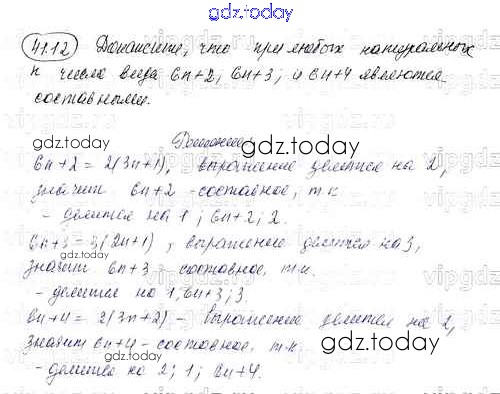 gdz.today
41.12 Докажите, что при любых натуральных
n числа вида 6n+2; 6n+3; и 6n+4 являются
составными.
gdz.today
6n+2 = 2(3n+1), выражение делится на 2,
значит 6n+2 - составное, т.к
- делится на 1; 6n+2; 2.
6n+3=3(2n+1), выражение делится на 3,
значит 6n+3 - составное, т.к.
- делится на 1; 6n+3; 3.
6n+4 = 2(3n+2) - выражение делится на 2,
значит 6n+4 - составное, т.к
- делится на 2; 1; 6n+4.
gdz.today
gdz.today
gdz.today
gdz.today
vipgdz